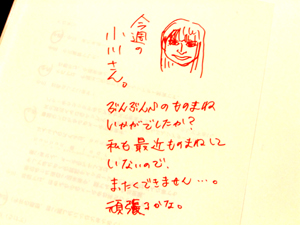 今週の
小川さん。
ぶんぶん♪のものまね
いかがでしたか?
私も最近ものまねして
いないので、
まったくできません…。
頑張るかな。